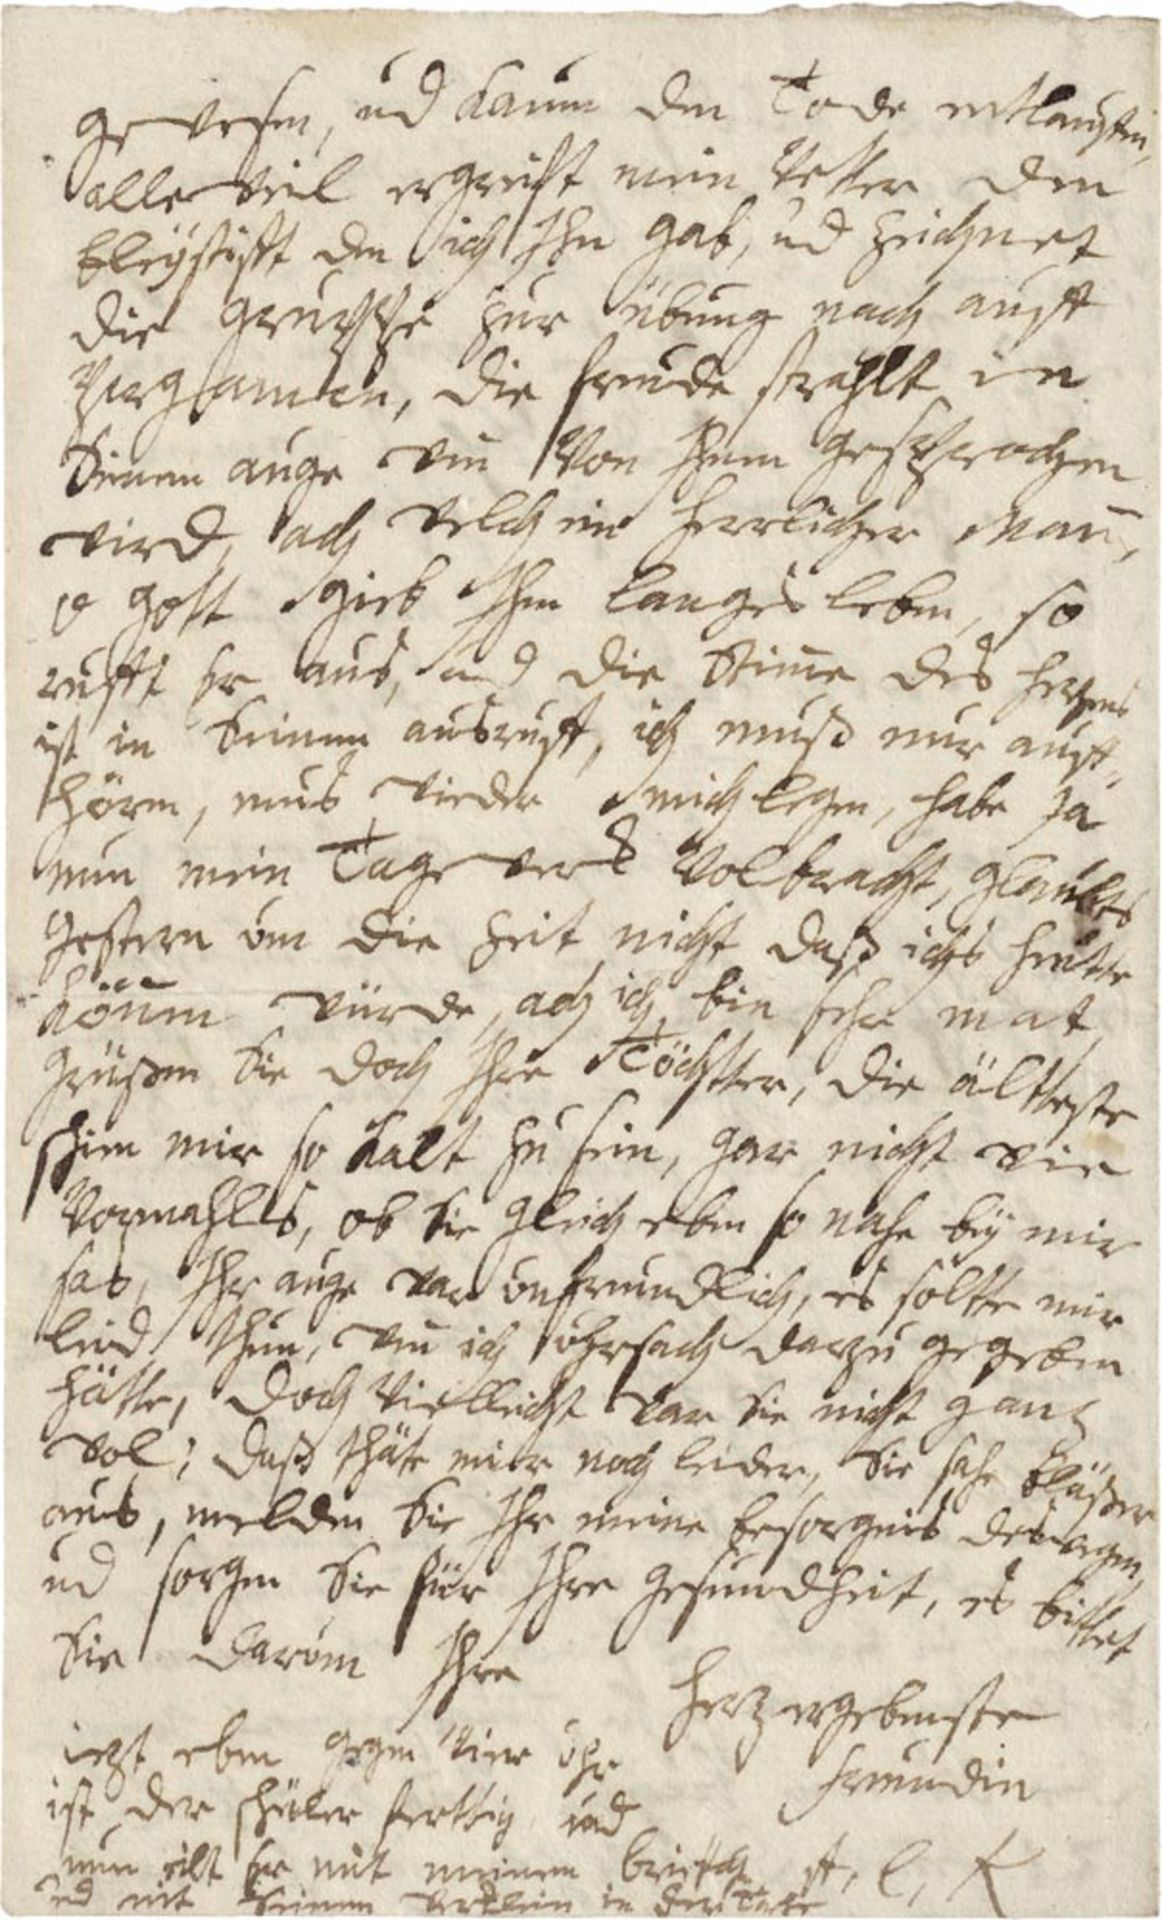 gewesen, ud kaum den Tode entlauffen,
alleweil ergreift mein Vetter den
bleystifft den ich Ihn gab, ud zeichnet
die gruppe zur übung nach auff
Pergamten, die freude strahlt in
Seinem auge wen Von Ihnen gesprochen
wird, ach welch ein herrlicher Man̄,
o gott gieb Ihm langes leben, so
rufft Er aus, und die Stim̄e des herzens
ist in Seinem ausruff, ich muß nur auff-
hören, mus wieder mich legen, habe Ja
nun mein Tagewerk Volbracht, glaubte
gestern um die Zeit nicht daß ichs heutte
kön̄en würde, ach ich bin sehr mat,
grüßen Sie doch Ihre Töchtter, die älltteste
schien mir so kalt zu sein, gar nicht wie
Vormahlls, ob Sie gleich eben so nahe bey mir
sas, Ihr auge war unfreundlich, es soltte mir
leid thun, wen ich uhrsach darzu gegeben
hätte, doch Vielleicht war Sie nicht gantz
wol; daß thäte mir noch leider, Sie sahe bläßer
aus, melden Sie Ihr meine besorgnis deswegen,
ud sorgen Sie für Ihre gesundheit, es bittet
Sie darum Ihre
herz ergebenste
freundin
A. L. K
iezt eben gegen Vier uhr
ist der schüler ferttig und
nun eilt Er mit meinem brieffch
ud mit Seinem werklein in der